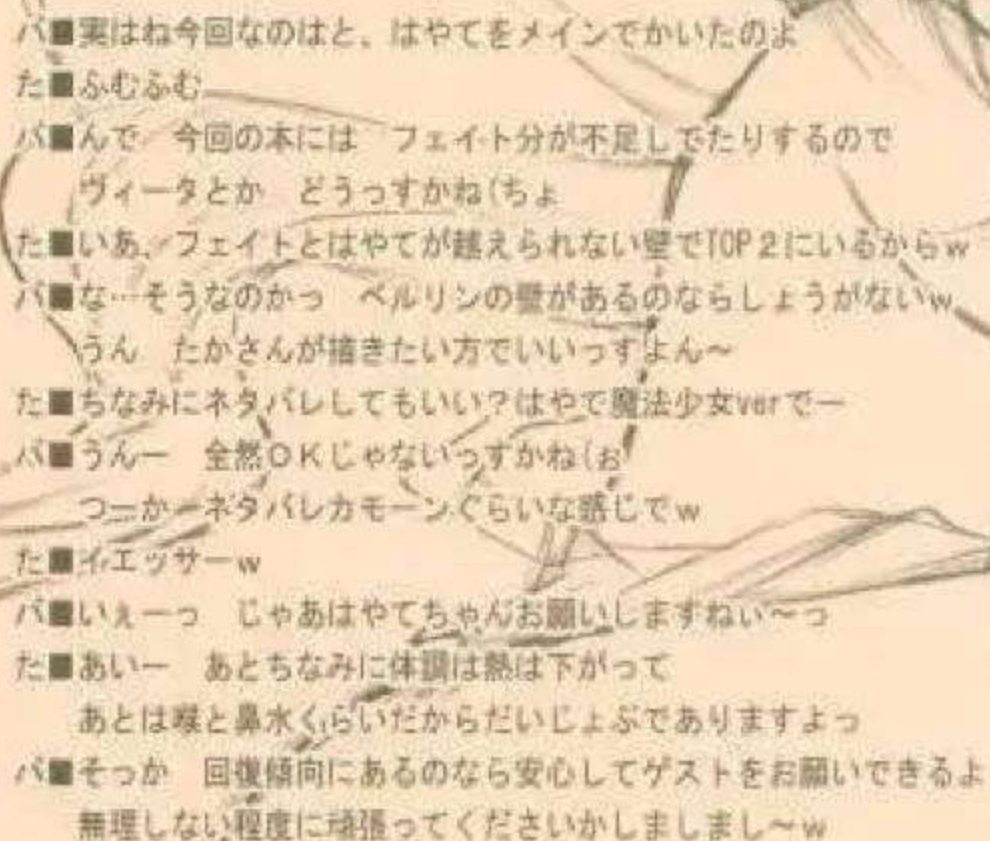 バ■実はね今回なのはと、はやてをメインでかいたのよ
た■ふむふむ
バ■んで　今回の本には　フェイト分が不足しでたりするので
ヴィータとか　どうっすかね(ちょ
た■いあ、フェイトとはやてが越えられない壁でTOP２にいるからｗ
バ■な…そうなのかっ　ベルリンの壁があるのならしょうがないｗ
うん　たかさんが描きたい方でいいっすよん～
た■ちなみにネタバレしてもいい？はやて魔法少女verでー
バ■うんー　全然ＯＫじゃないっすかね(ぉ
つーかーネタバレカモーンぐらいな感じでｗ
た■イエッサーｗ
バ■いぇーっ　じゃあはやてちゃんお願いしますねぃ～っ
た■あいー　あとちなみに体調は熱は下がって
あとは喉と鼻水くらいだからだいじょぶでありますよっ
バ■そっか　回復傾向にあるのなら安心してゲストをお願いできるよ
無理しない程度に頑張ってくださいかしましまし～ｗ